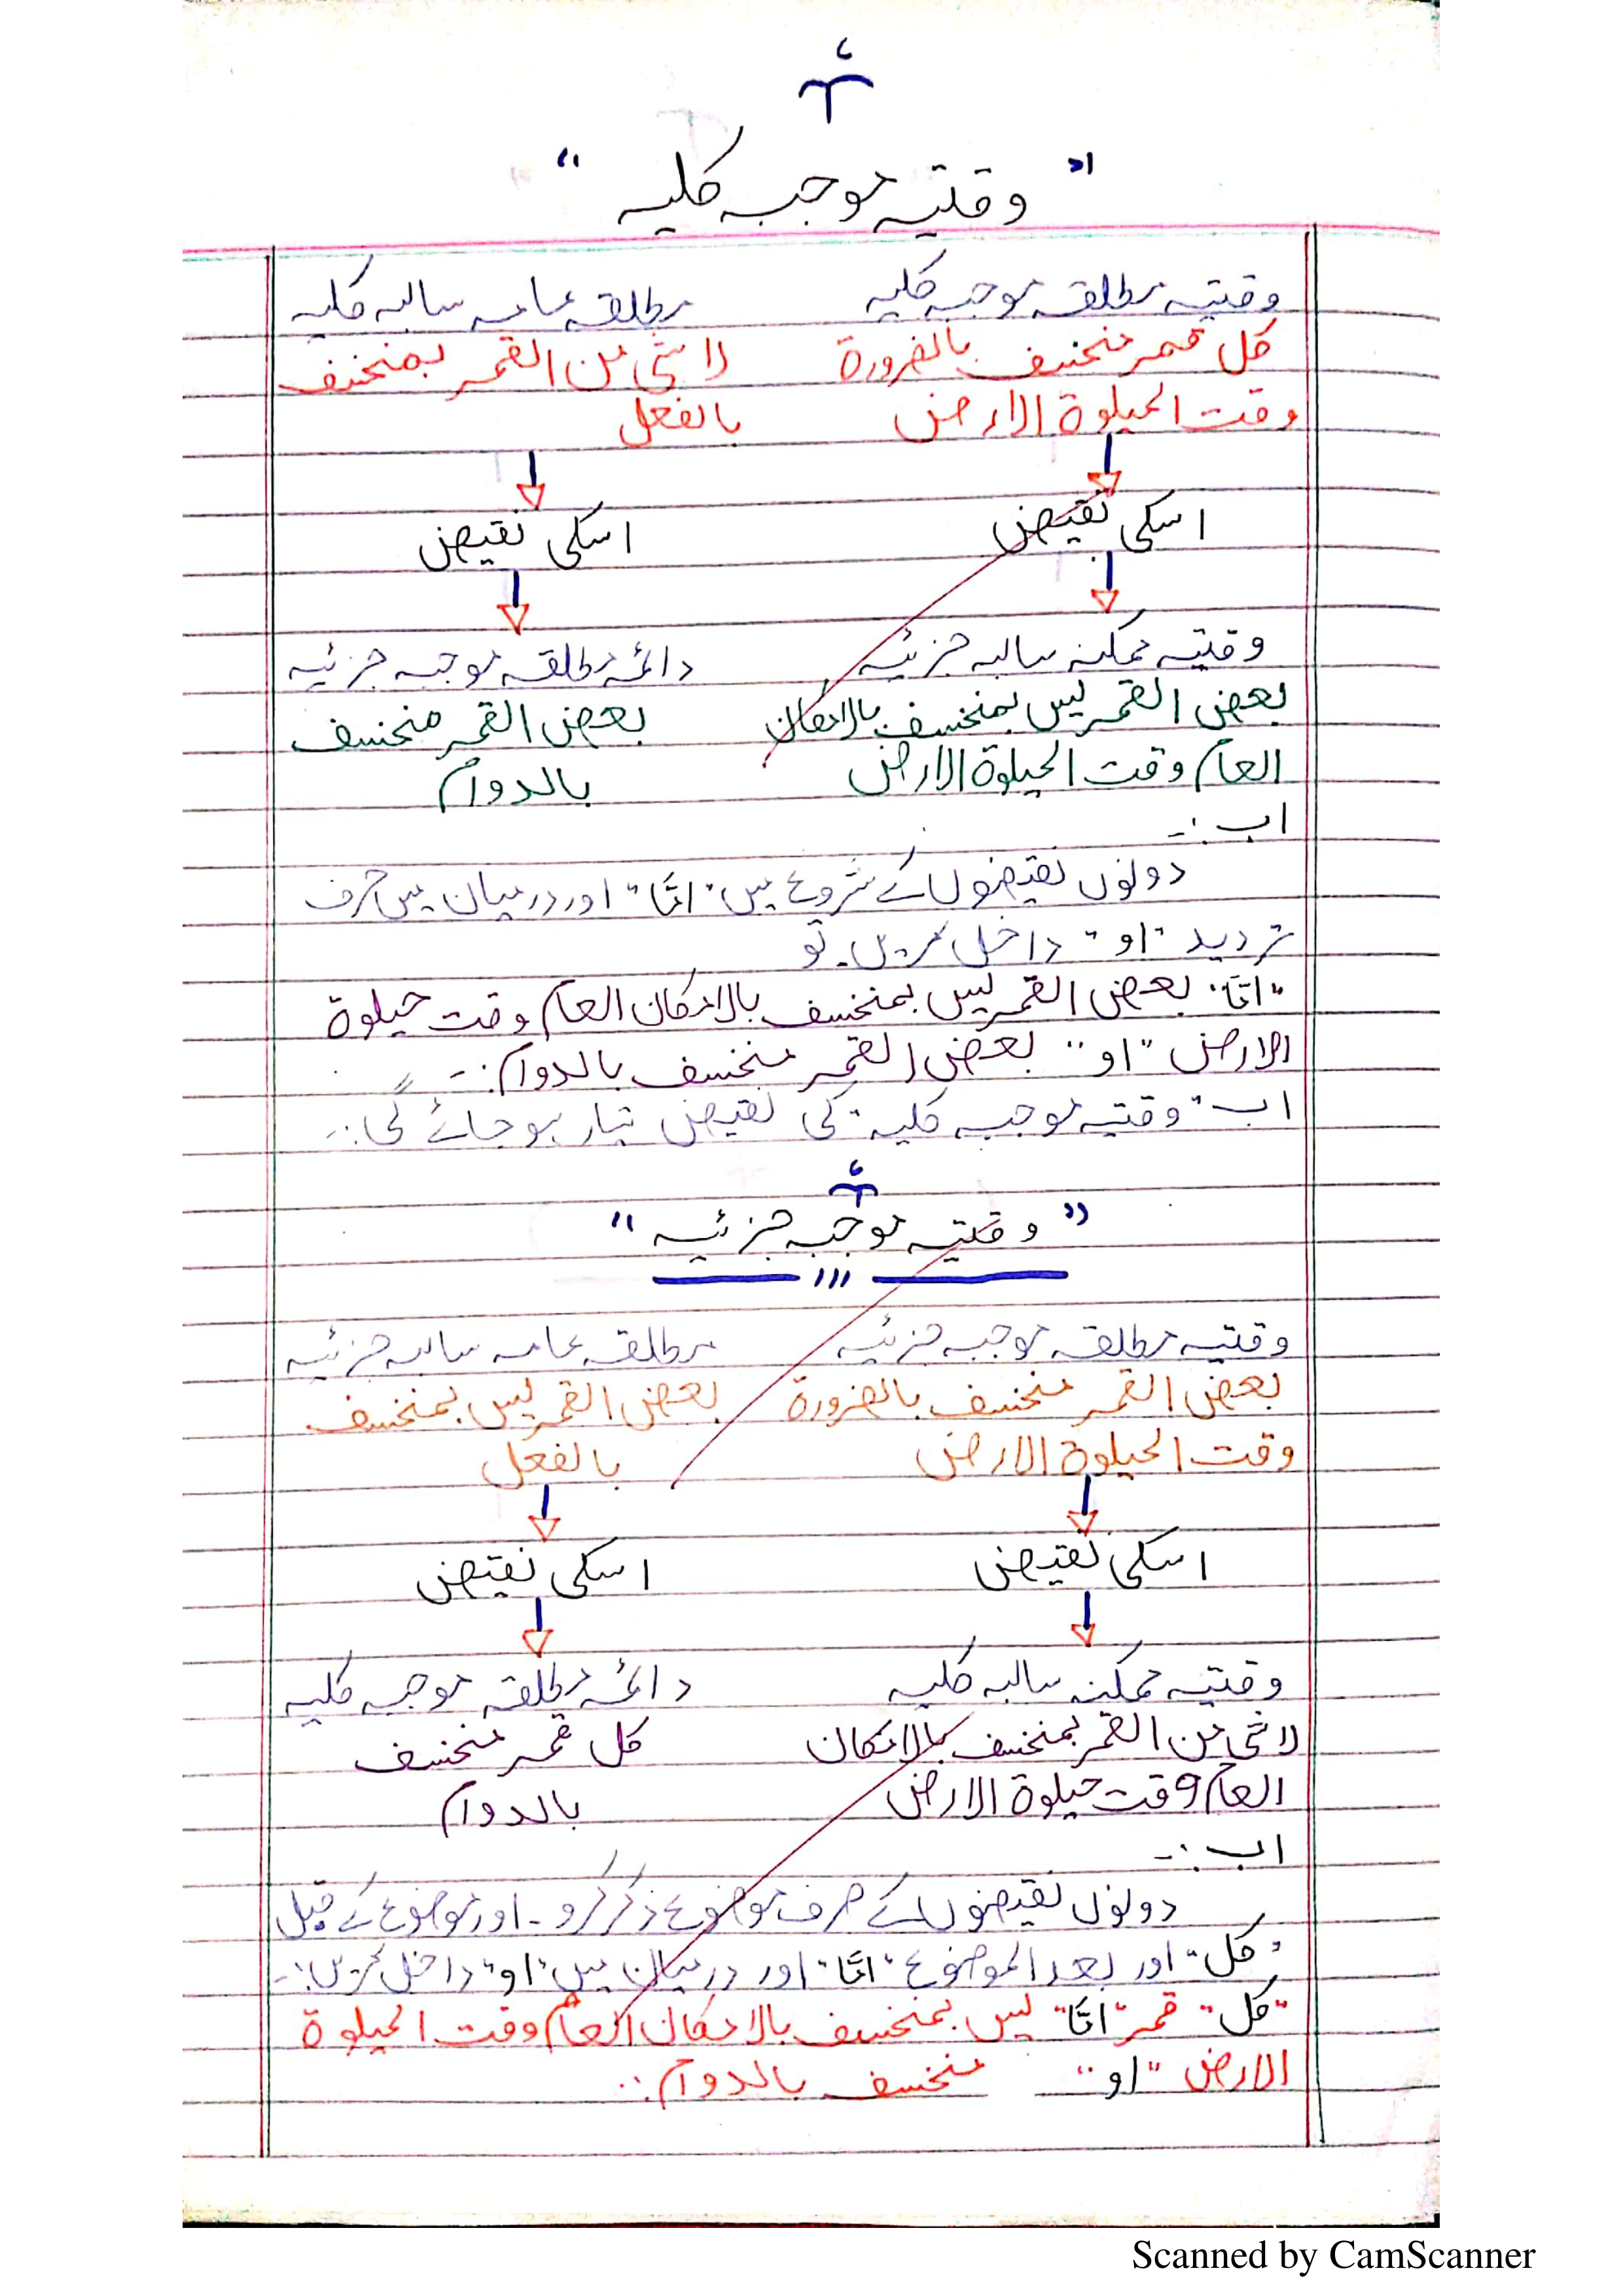 "وقتیہ موجبہ کلیہ"
وقتیہ مطلقہ موجبہ کلیہ    مطلقہ عامہ سالبہ کلیہ
کل قمر منخسف بالضرورة    لا شئ من القمر بمنخسف
وقت الحیلوة الارض    بالفعل
اسکی نقیض    اسکی نقیض
وقتیہ ممکنہ سالبہ جزئیہ    دائمہ مطلقہ موجبہ جزئیہ
بعض القمر لیس بمنخسف بالامکان    بعض القمر منخسف
العام وقت الحیلوة الارض    بالدوام
اب :-
دونوں نقیضوں کے شروع میں "امّا" اور درمیان میں حرف
تردید "او" داخل کریں۔ تو
"امّا" بعض القمر لیس بمنخسف بالامکان العام وقت حیلوة
الارض "او" بعض القمر منخسف بالدوام :-
اب "وقتیہ موجبہ کلیہ" کی نقیض تیار ہو جائے گی :-
"وقتیہ موجبہ جزئیہ"
وقتیہ مطلقہ موجبہ جزئیہ    مطلقہ عامہ سالبہ جزئیہ
بعض القمر منخسف بالضرورة    بعض القمر لیس بمنخسف
وقت الحیلوة الارض    بالفعل
اسکی نقیض    اسکی نقیض
وقتیہ ممکنہ سالبہ کلیہ    دائمہ مطلقہ موجبہ کلیہ
لا شئ من القمر بمنخسف بالامکان    کل قمر منخسف
العام وقت حیلوة الارض    بالدوام
اب :-
دونوں نقیضوں کے صرف موضوع ذکر کرو۔ اور موضوع کے قبل
"کل" اور بعد الموضوع "امّا" اور درمیان میں "او" داخل کریں :-
"کل" قمر "امّا" لیس بمنخسف بالامکان العام وقت الحیلوة
الارض "او" منخسف بالدوام :-
Scanned by CamScanner